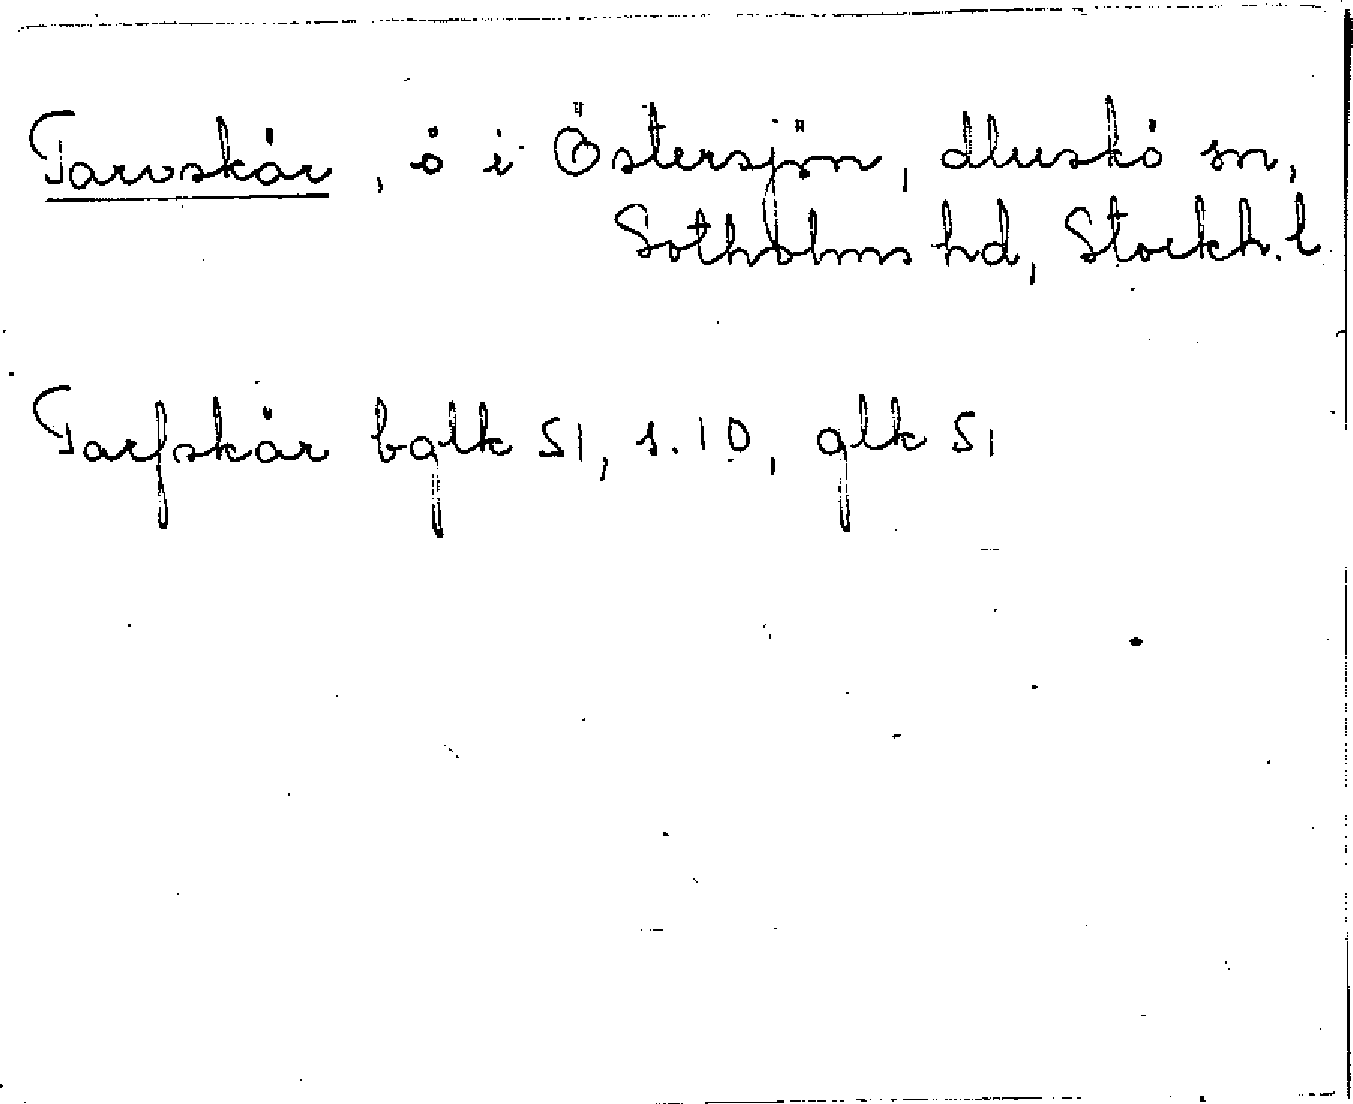 Tarvskär, ö i Östersjön, Muskö sn,
Sotholms hd, Stockh. l
Tarfskär bglk 51, s. 10, glk 51